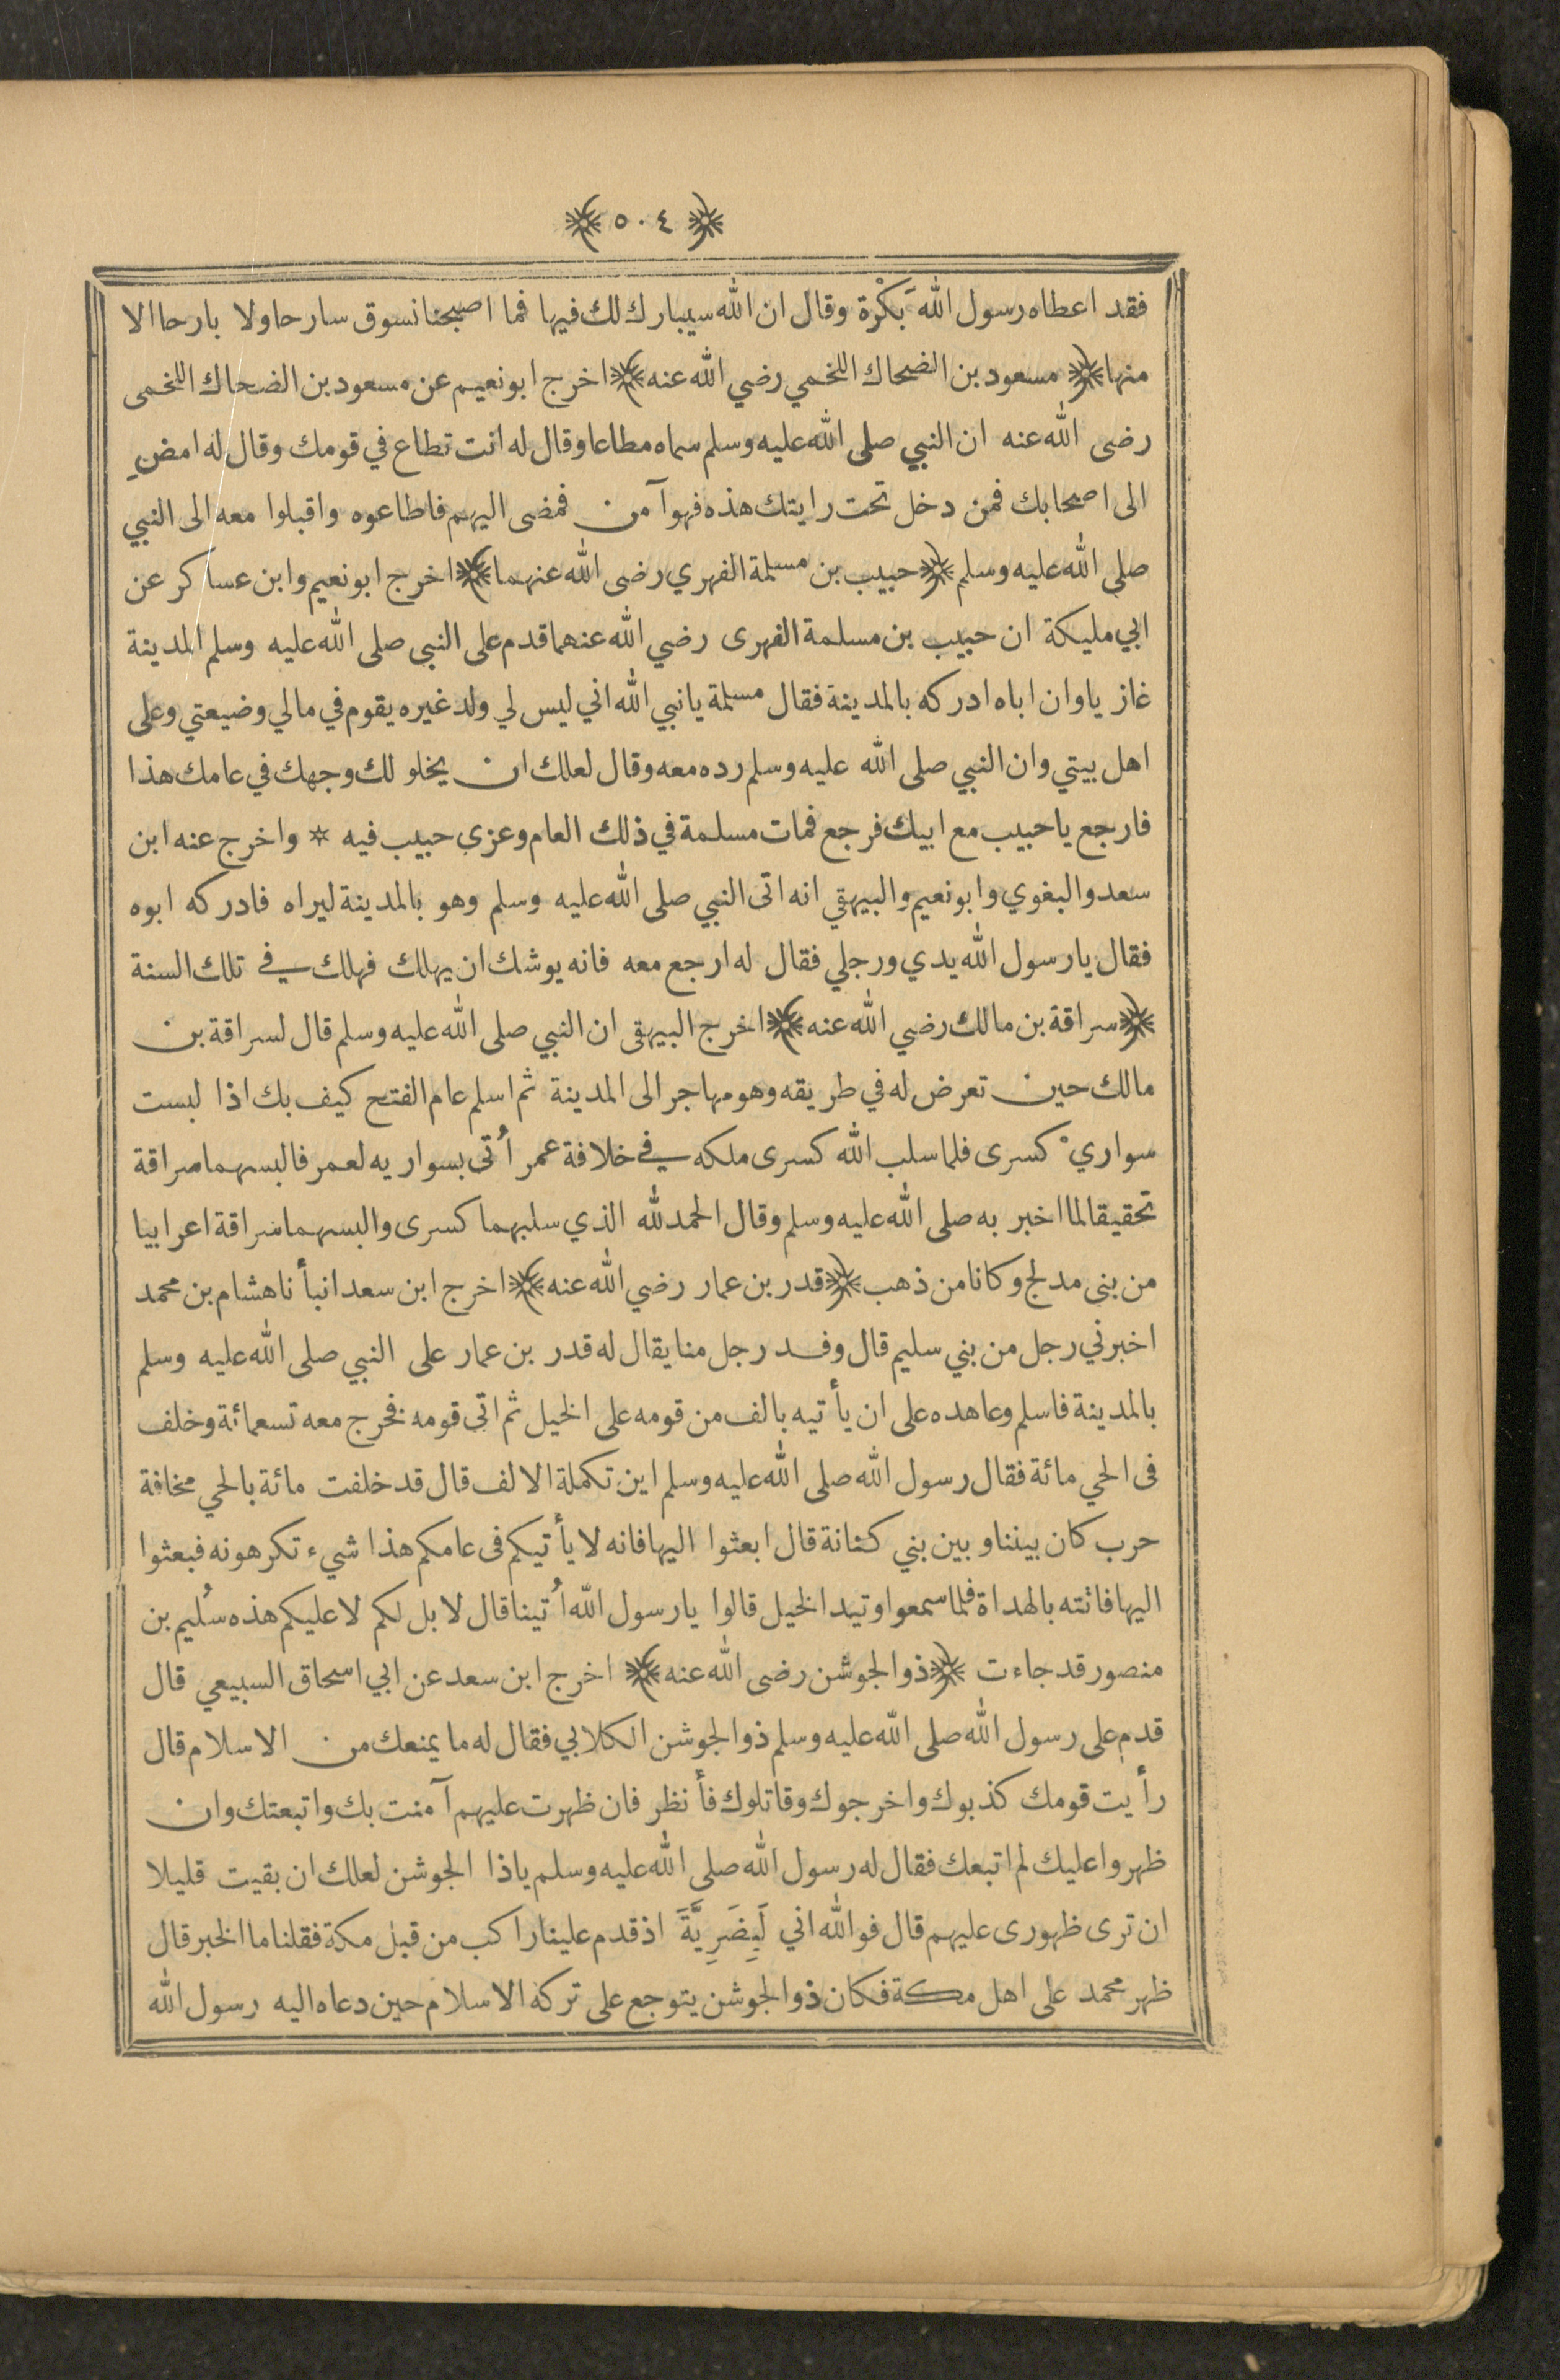 ﴿ ٥٠٤ ﴾
فقد اعطاه رسول الله بَكْرَة وقال ان الله سيبارك لك فيها فما اصبحنا نسوق سارحا ولا بارحا الا
منها ﴿ مسعود بن الضحاك اللخمي رضي الله عنه ﴾ اخرج ابو نعيم عن مسعود بن الضحاك اللخمى
رضى الله عنه ان النبي صلى الله عليه وسلم سماه مطاعا وقال له انت تطاع في قومك وقال له امضِ
الى اصحابك فمن دخل تحت رايتك هذه فهو آمن فمضى اليهم فاطاعوه واقبلوا معه الى النبي
صلى الله عليه وسلم ﴿ حبيب بن مسلمة الفهري رضى الله عنهما ﴾ اخرج ابو نعيم وابن عساكر عن
ابي مليكة ان حبيب بن مسلمة الفهرى رضي الله عنهما قدم على النبي صلى الله عليه وسلم المدينة
غازيا وان اباه ادركه بالمدينة فقال مسلمة يا نبي الله اني ليس لي ولد غيره يقوم في مالي وضيعتي وعلى
اهل بيتي وان النبي صلى الله عليه وسلم رده معه وقال لعلك ان يخلو لك وجهك في عامك هذا
فارجع يا حبيب مع ابيك فرجع فمات مسلمة في ذلك العام وعزى حبيب فيه * واخرج عنه ابن
سعد والبغوي وابو نعيم والبيهقي انه اتى النبي صلى الله عليه وسلم وهو بالمدينة ليراه فادركه ابوه
فقال يا رسول الله يدي ورجلي فقال له ارجع معه فانه يوشك ان يهلك فهلك في تلك السنة
﴿ سراقة بن مالك رضي الله عنه ﴾ اخرج البيهقى ان النبي صلى الله عليه وسلم قال لسراقة بن
مالك حين تعرض له في طريقه وهو مهاجر الى المدينة ثم اسلم عام الفتح كيف بك اذا لبست
سواريْ كسرى فلما سلب الله كسرى ملكه في خلافة عمر اُتى بسواريه لعمر فالبسهما سراقة
تحقيقا لما اخبر به صلى الله عليه وسلم وقال الحمد لله الذي سلبهما كسرى والبسهما سراقة اعرابيا
من بنى مدلج وكانا من ذهب ﴿ قدر بن عمار رضي الله عنه ﴾ اخرج ابن سعد انبأنا هشام بن محمد
اخبرني رجل من بني سليم قال وفد رجل منا يقال له قدر بن عمار على النبي صلى الله عليه وسلم
بالمدينة فاسلم وعاهده على ان يأتيه بالف من قومه على الخيل ثم اتى قومه فخرج معه تسعمائة وخلف
فى الحي مائة فقال رسول الله صلى الله عليه وسلم اين تكملة الالف قال قد خلفت مائة بالحي مخافة
حرب كان بيننا وبين بني كنانة قال ابعثوا اليها فانه لا يأتيكم فى عامكم هذا شيء تكرهونه فبعثوا
اليها فاتته بالهداة فلما سمعوا وتيد الخيل قالوا يا رسول الله اُتينا قال لا بل لكم لا عليكم هذه سُليم بن
منصور قد جاءت ﴿ ذو الجوشن رضى الله عنه ﴾ اخرج ابن سعد عن ابي اسحاق السبيعي قال
قدم على رسول الله صلى الله عليه وسلم ذو الجوشن الكلابي فقال له ما يمنعك من الاسلام قال
رأيت قومك كذبوك واخرجوك وقاتلوك فأنظر فان ظهرت عليهم آمنت بك واتبعتك وان
ظهروا عليك لم اتبعك فقال له رسول الله صلى الله عليه وسلم يا ذا الجوشن لعلك ان بقيت قليلا
ان ترى ظهورى عليهم قال فوالله اني لَبِضَرِيَّةَ اذ قدم علينا راكب من قبل مكة فقلنا ما الخبر قال
ظهر محمد على اهل مكة فكان ذو الجوشن يتوجع على تركه الاسلام حين دعاه اليه رسول الله